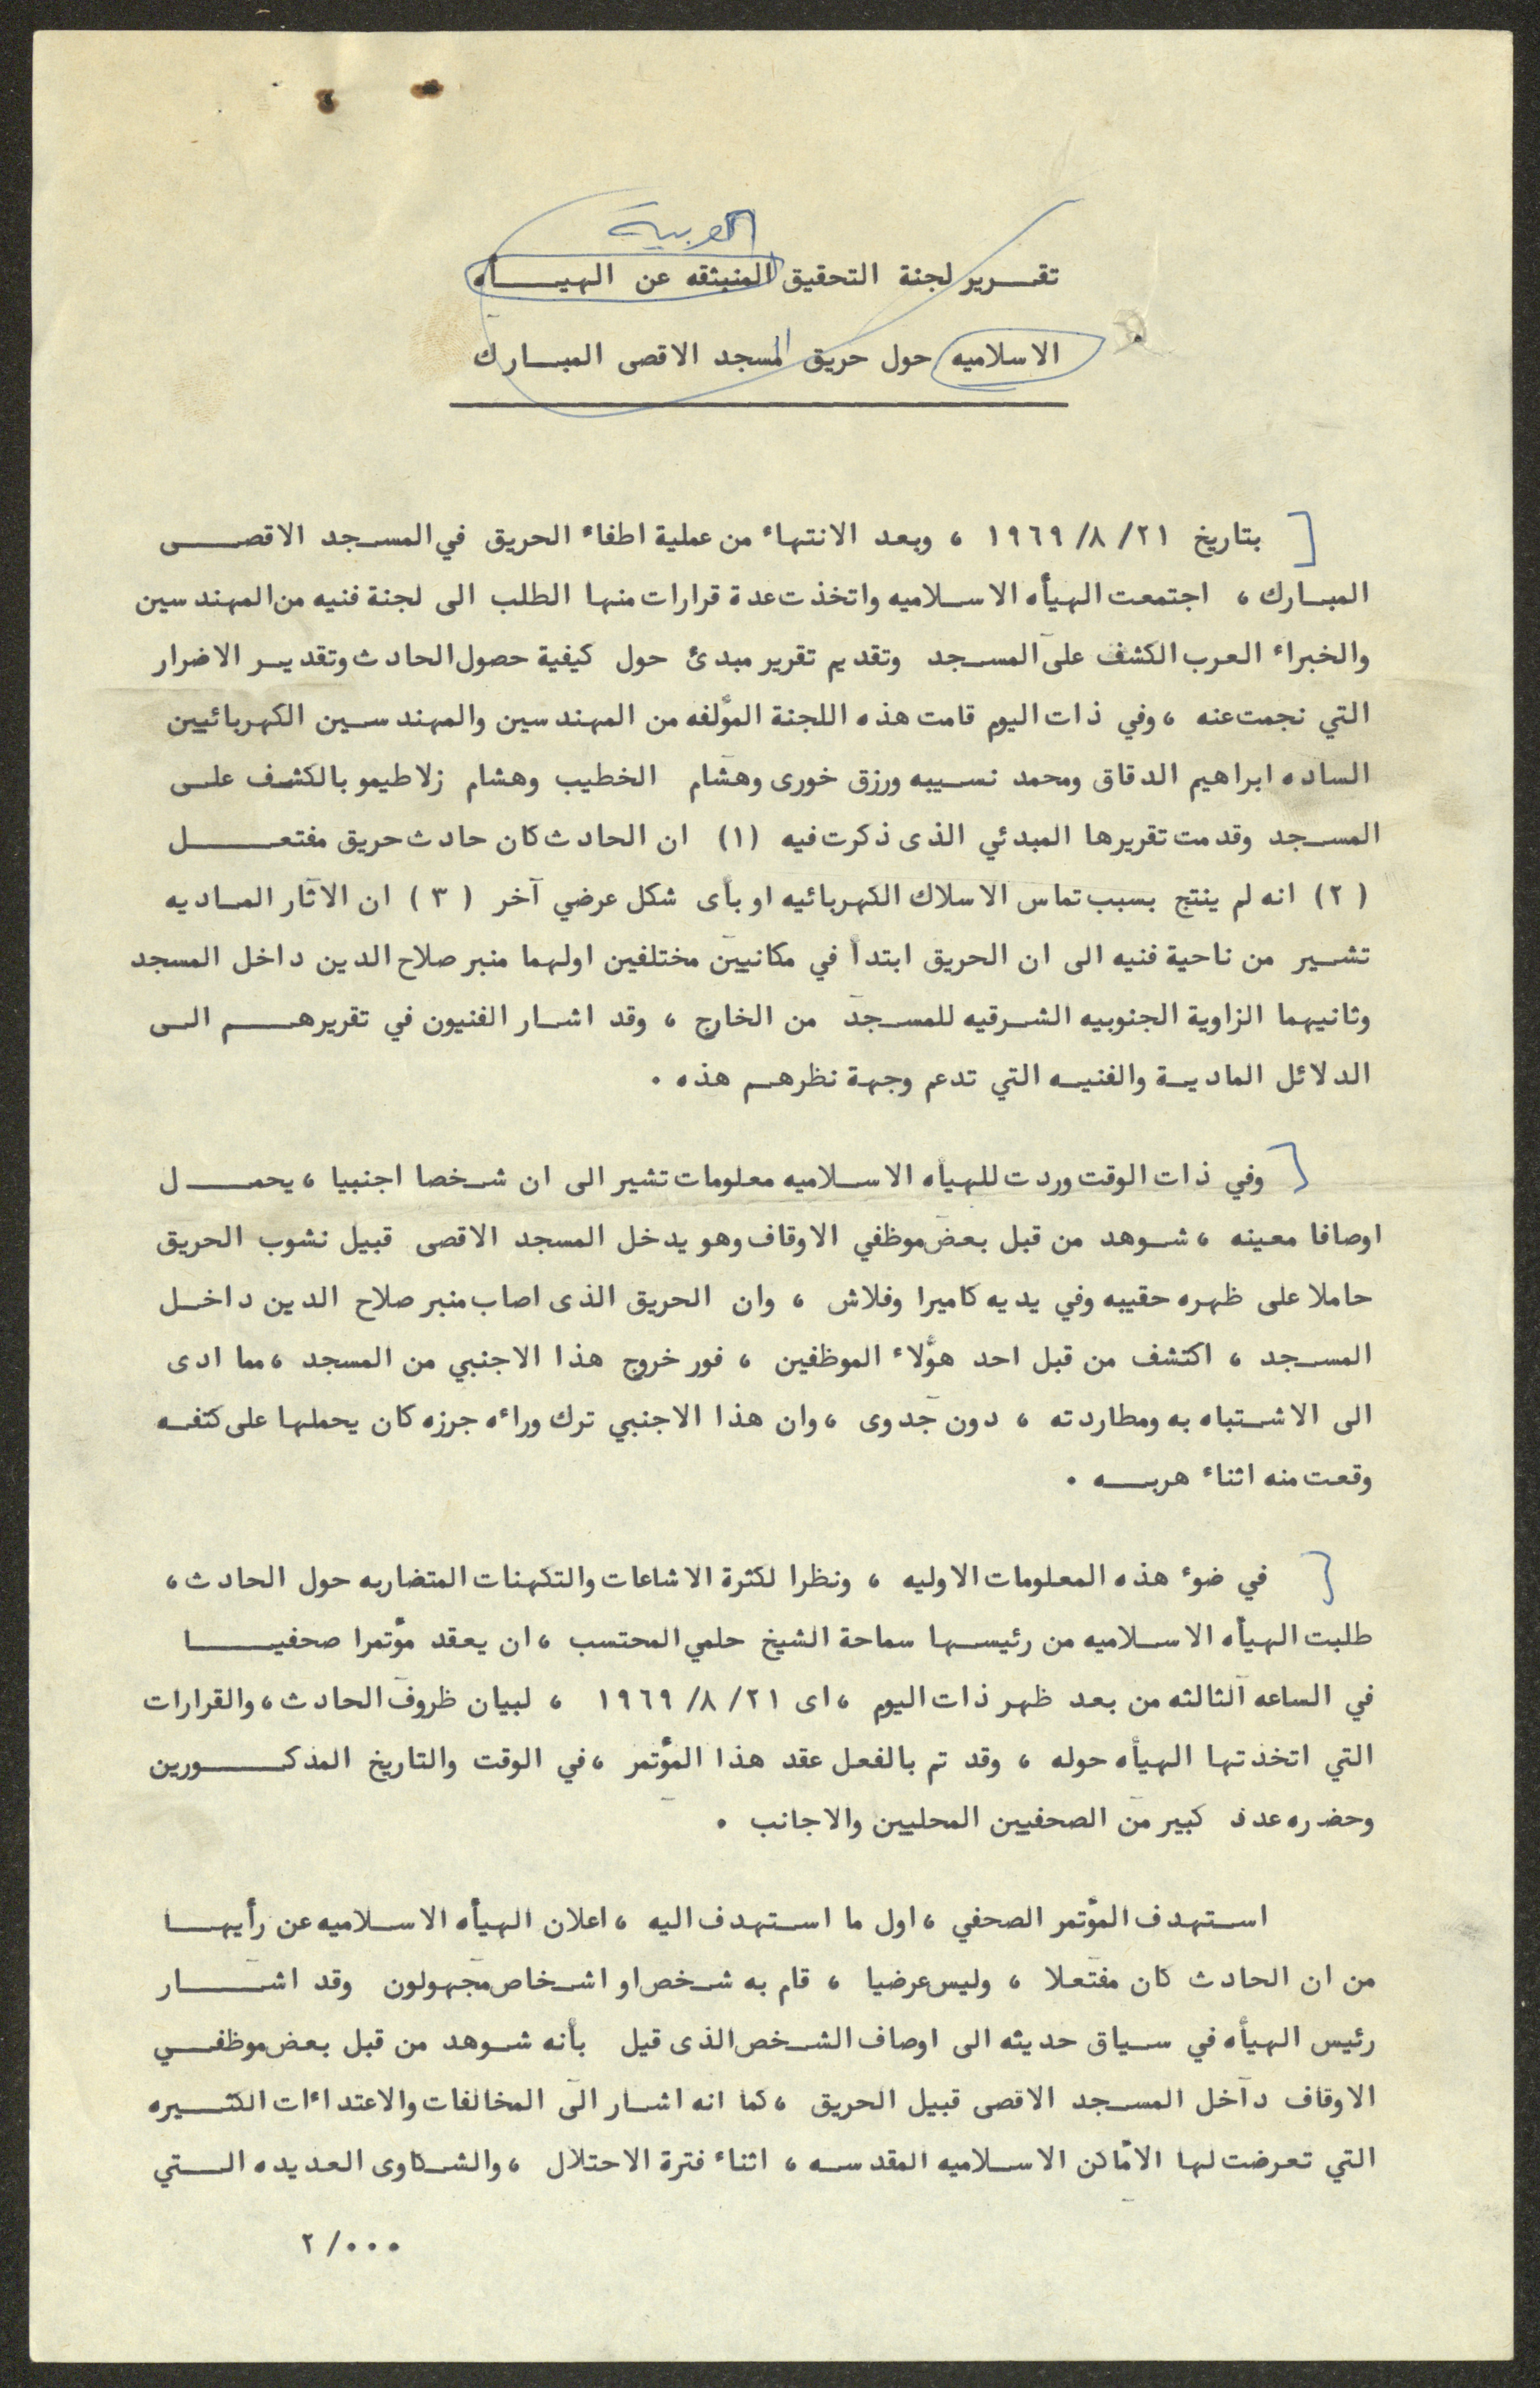 العربية
تقرير لجنة التحقيق المنبثقه عن الهيأه
الاسلاميه حول حريق المسجد الاقصى المبارك
بتاريخ ٢١/ ٨/ ١٩٦٩ ، وبعد الانتهاء من عملية اطفاء الحريق في المسجد الاقصى
المبارك ، اجتمعت الهيأه الاسلاميه واتخذت عدة قرارات منها الطلب الى لجنة فنيه من المهندسين
والخبراء العرب الكشف على المسجد وتقديم تقرير مبدئ حول كيفية حصول الحادث وتقدير الاضرار
التي نجمت عنه ، وفي ذات اليوم قامت هذه اللجنة المؤلفه من المهندسين والمهندسين الكهربائيين
الساده ابراهيم الدقاق ومحمد نسيبه ورزق خورى وهشام الخطيب وهشام زلاطيمو بالكشف على
المسجد وقدمت تقريرها المبدئي الذى ذكرت فيه (١) ان الحادث كان حادث حريق مفتعل
(٢) انه لم ينتج بسبب تماس الاسلاك الكهربائيه او بأى شكل عرضي آخر (٣) ان الآثار الماديه
تشير من ناحية فنيه الى ان الحريق ابتدأ في مكانيين مختلفين اولهما منبر صلاح الدين داخل المسجد
وثانيهما الزاوية الجنوبيه الشرقيه للمسجد من الخارج ، وقد اشار الفنيون في تقريرهم الى
الدلائل المادية والفنيه التي تدعم وجهة نظرهم هذه .
وفي ذات الوقت وردت للهيأه الاسلاميه معلومات تشير الى ان شخصا اجنبيا ، يحمل
اوصافا معينه ، شوهد من قبل بعض موظفي الاوقاف وهو يدخل المسجد الاقصى قبيل نشوب الحريق
حاملا على ظهره حقيبه وفي يديه كاميرا وفلاش ، وان الحريق الذى اصاب منبر صلاح الدين داخل
المسجد ، اكتشف من قبل احد هؤلاء الموظفين ، فور خروج هذا الاجنبي من المسجد ، مما ادى
الى الاشتباه به ومطاردته ، دون جدوى ، وان هذا الاجنبي ترك وراءه جرزه كان يحملها على كتفه
وقعت منه اثناء هربه .
في ضوء هذه المعلومات الاوليه ، ونظرا لكثرة الاشاعات والتكهنات المتضاربه حول الحادث ،
طلبت الهيأه الاسلاميه من رئيسها سماحة الشيخ حلمي المحتسب ، ان يعقد مؤتمرا صحفيا
في الساعه الثالثه من بعد ظهر ذات اليوم ، اى ٢١/ ٨/ ١٩٦٩ ، لبيان ظروف الحادث ، والقرارات
التي اتخذتها الهيأه حوله ، وقد تم بالفعل عقد هذا المؤتمر ، في الوقت والتاريخ المذكورين
وحضره عدد كبير من الصحفيين المحليين والاجانب .
استهدف المؤتمر الصحفي ، اول ما استهدف اليه ، اعلان الهيأه الاسلاميه عن رأيها
من ان الحادث كان مفتعلا ، وليس عرضيا ، قام به شخص او اشخاص مجهولون وقد اشار
رئيس الهيأه في سياق حديثه الى اوصاف الشخص الذى قيل بأنه شوهد من قبل بعض موظفي
الاوقاف داخل المسجد الاقصى قبيل الحريق ، كما انه اشار الى المخالفات والاعتداءات الكثيره
التي تعرضت لها الاماكن الاسلاميه المقدسه ، اثناء فترة الاحتلال ، والشكاوى العديده التي
٢/٠٠٠